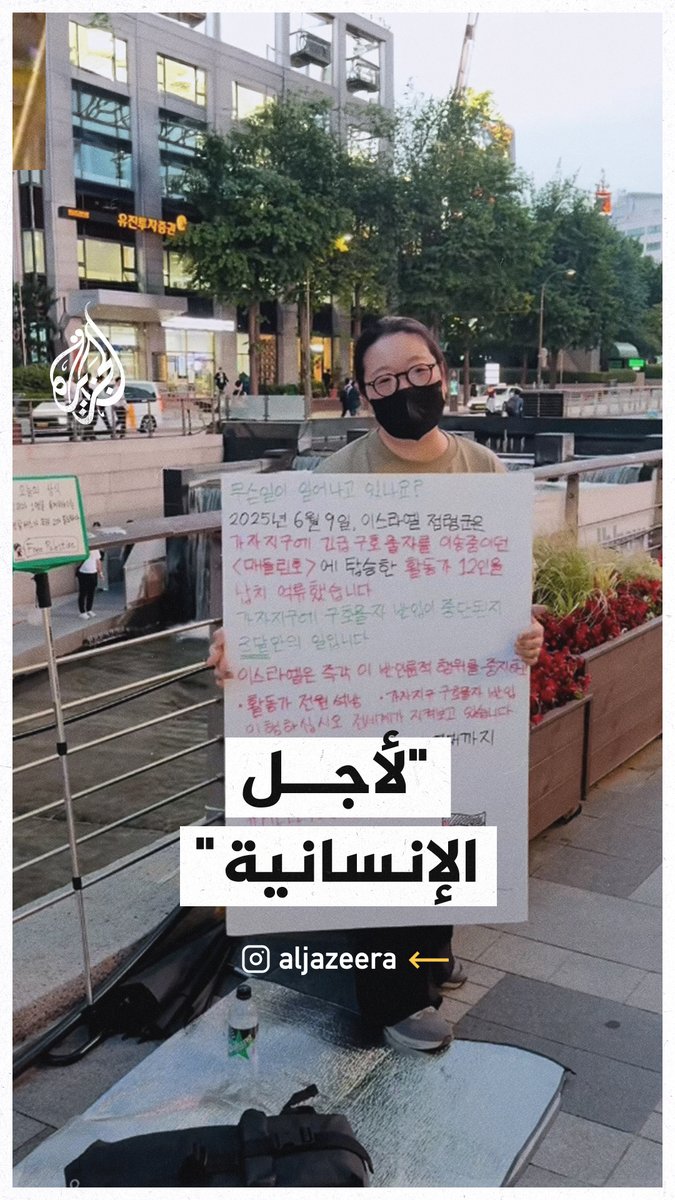 유진투자증권
오늘의 상식
Free Palestine
무슨일이 일어나고 있나요?
2025년 6월 9일, 이스라엘 점령군은
가자지구에 긴급구호물자를 이송중이던
<매들린호>에 탑승한 활동가 12인을
납치 억류했습니다
가자지구에 구호물자 반입이 중단된지
만의 일입니다
이스라엘은 즉각 이 반인륜적 행위를 중지하
· 활동가 전원 석방 · 가자지구 구호물자 반입
이행하십시오 전세계가 지켜보고 있습니다
까지
"لأجل
الإنسانية"
aljazeera